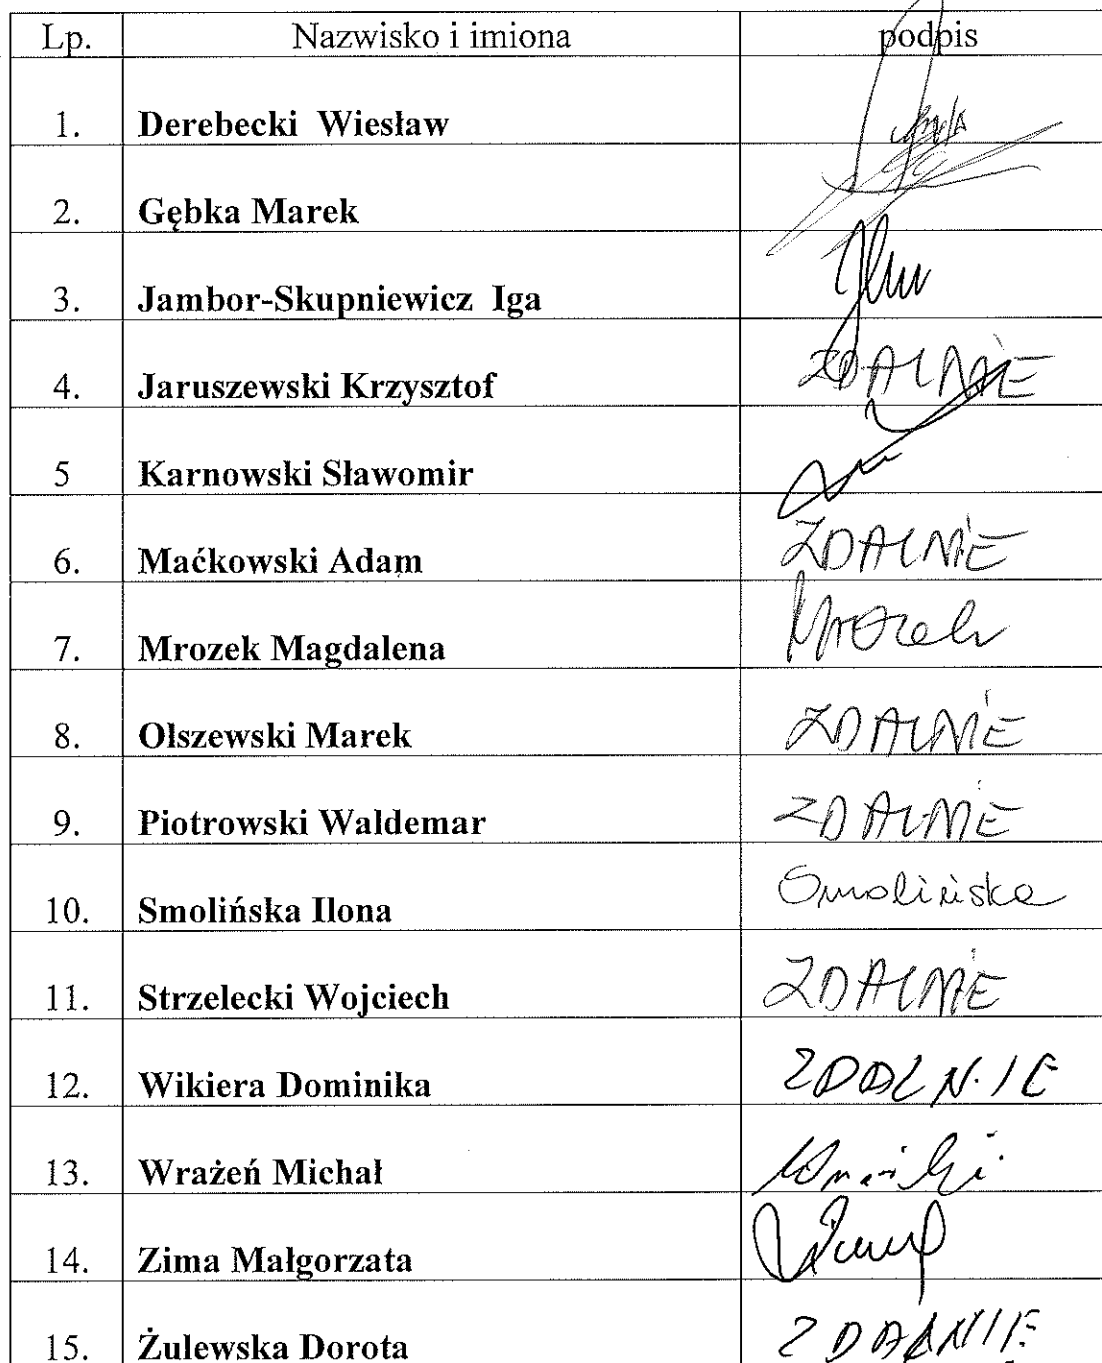 Lp. Nazwisko i imiona podpis
1. Derebecki Wiesław
2. Gębka Marek
3. Jambor-Skupniewicz Iga
4. Jaruszewski Krzysztof ZDALNIE
5 Karnowski Sławomir
6. Maćkowski Adam ZDALNIE
7. Mrozek Magdalena Mrozek
8. Olszewski Marek ZDALNIE
9. Piotrowski Waldemar ZDALNIE
10. Smolińska Ilona Smolińska
11. Strzelecki Wojciech ZDALNIE
12. Wikiera Dominika ZDALNIE
13. Wrażeń Michał
14. Zima Małgorzata
15. Żulewska Dorota ZDALNIE